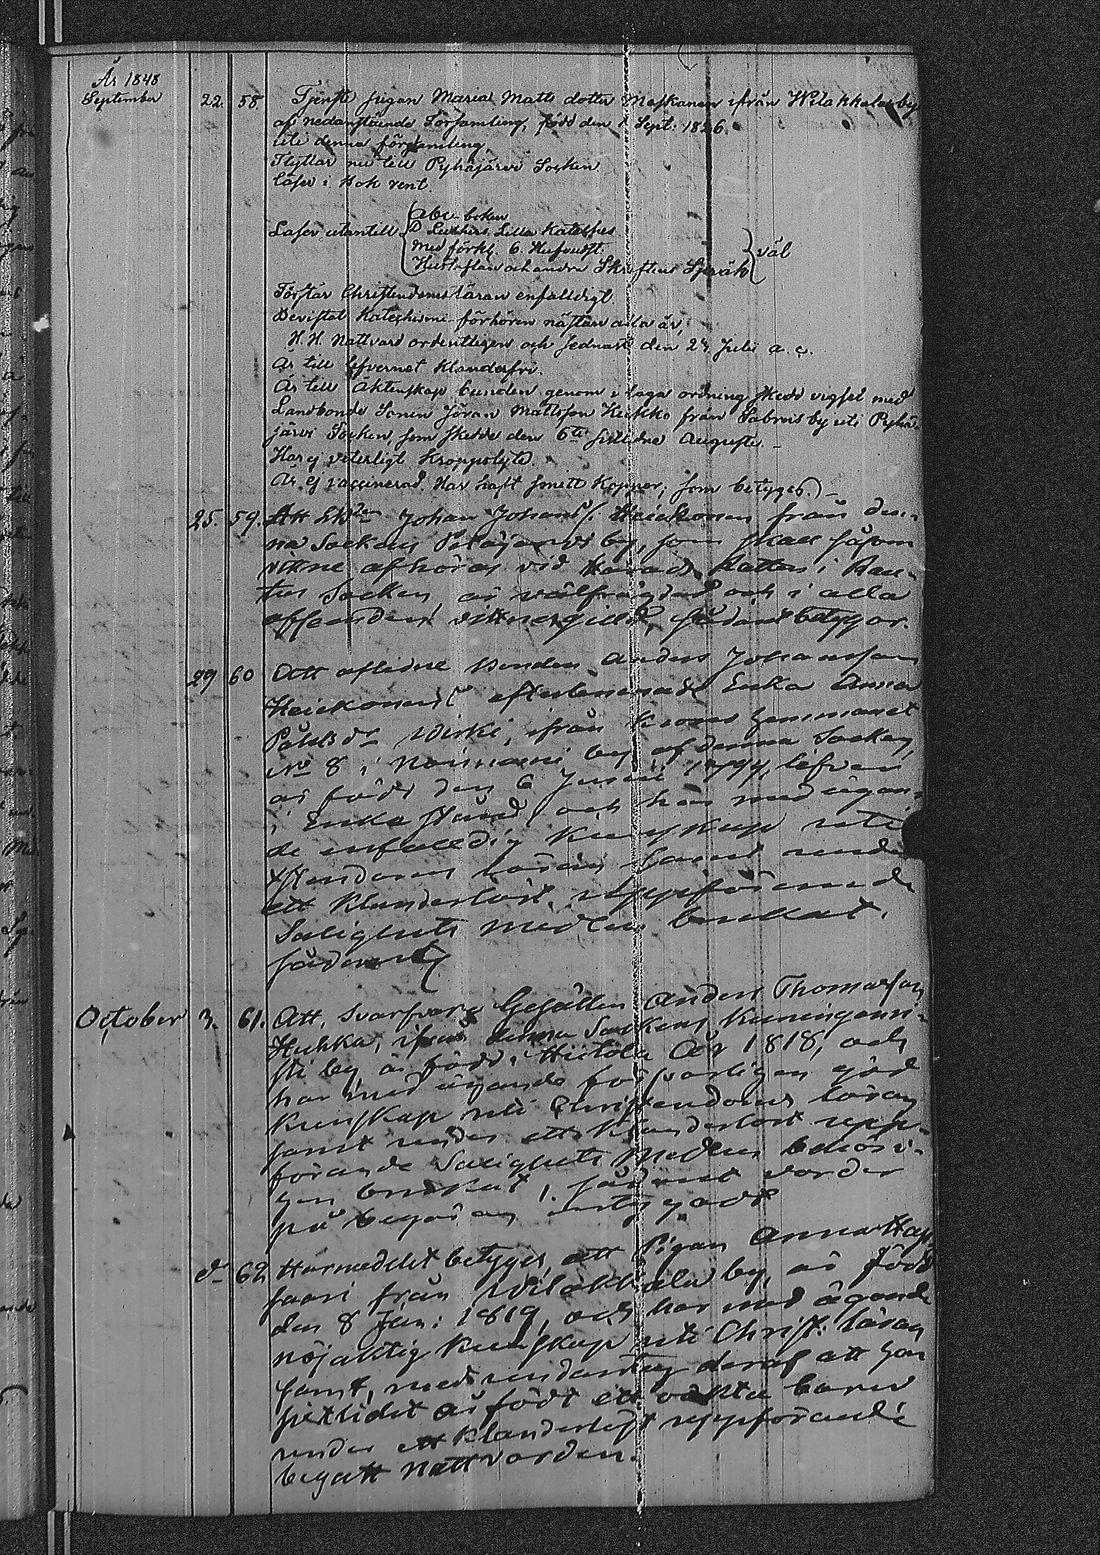 År 1848
September 22. 58. Tjenste pigan Maria Matts dotter Meskanen ifrån Wilakkala by
af nedanstående Församling, född den Sept: 1826.
uti denna församling
Flyttar nu till Pyhäjärvi Socken
läser i Bok rent.
abc boken
Läser utantill D Luthers Lilla Kateches
med förkl. 6. Hufvudst.
Hustaflan och andra Skriftens Språk väl
Förstår Christendomsläran enfaldigt.
Bevistat Katechismi förhören nästan alla år,
H. H. Nattvard ordentligen och sednast den 23 Juli a. c.
Är till lefvernet klanderfri.
Är till Äktenskap bunden genom i laga ordning skedd vigsel med
Landbonde Sonen Jöran Mattsson Kukko från by uti Pyhä-
järvi Socken, som skedde den 6te sistledne Augusti.
Har ej veterligt kroppslyte.
Är ej vaccinerad. Har haft Smitt Koppor, som betygas.
25. 59. Att Johan Johans/: Heickonen från den-
na Socken by, som skall såsom
vittne afhöras vid Härads Rätten i
Socken är välfrägdad och i alla
afseenden vittnesgilld, sådant betygar.
29 60 Att aflidne Bonden Anders Johansson
Heickonens efterlemnade Enka Anna
Påhls dr Wirki, ifrån Krono hemmanet
No 8 i by af denna Socken,
är född den 6 Junii 1797, lefver
i Enke stånd och har med ägan-
de enfaldig kunskap uti
Xstendoms läran samt under
ett klanderlöst uppförande
Salighets medlen brukat.
sådant
October 3. 61. Att Svarfvare Gesällen Anders Thomasson
Hukka, ifrån denna Sockens Kuningan-
sti by är född i Hiitola År 1818, och
har med ägande försvarligen god
kunskap uti Christendoms läran
samt under ett klanderlöst upp-
förande Salighets medlen behöri-
gen brukat, sådant varder
på begäran intygadt
do 62 Härmedelst betyges, att Pigan Anna Hap
saari från Wilakkala by, är född
den 8 Jan: 1819, och har med ägande
nöjaktig kunskap uti Christ: läran
samt, med undantag deraf att hon
sistlidit år födt ett oäkta barn
under ett klanderlöst uppförande
begått Nattvarden.